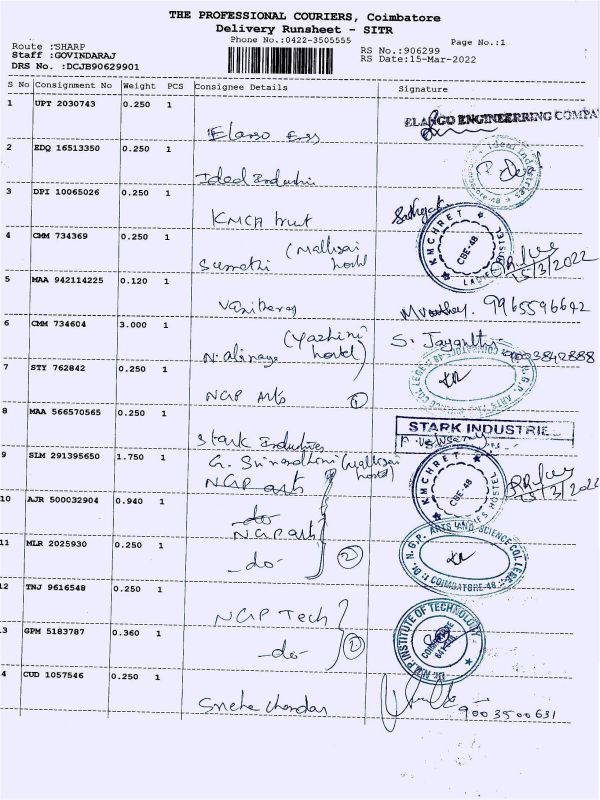 THE PROFESSIONAL COURIERS, Coimbatore
Delivery Runsheet - SITR
Phone No.:0422-3505555
Page No.:1
Route :SHARP
Staff :GOVINDARAJ
DRS No. :DCJB90629901
RS No.:906299
RS Date:15-Mar-2022
S No Consignment No Weight PCS Consignee Details Signature
1 UPT 2030743 0.250 1
ENGINEERRING COMPA
2 EDQ 16513350 0.250 1
Ideal
3 DPI 10065026 0.250 1
KMCH
4 CMM 734369 0.250 1
Sumathi
KMCHRET CBE-48
15/3/2022
5 MAA 942114225 0.120 1
9965596642
6 CMM 734604 3.000 1
(Yazhini hostel)
S. Jayanthi
7 STY 762842 0.250 1
NGP Arts 1
8 MAA 566570565 0.250 1
Stark Industries
STARK INDUSTRIE
9 SLM 291395650 1.750 1
NGP arts
KMCHRET CBE-48
15/3/2022
10 AJR 500032904 0.940 1
-do-
NGP arts
11 MLR 2025930 0.250 1
-do- 2
N.G.P. ARTS AND SCIENCE COLLEGE
COIMBATORE-48
12 TNJ 9616548 0.250 1
NGP Tech
3 GPM 5183787 0.360 1
-do-
INSTITUTE OF TECHNOLOGY
4 CUD 1057546 0.250 1
9003500631